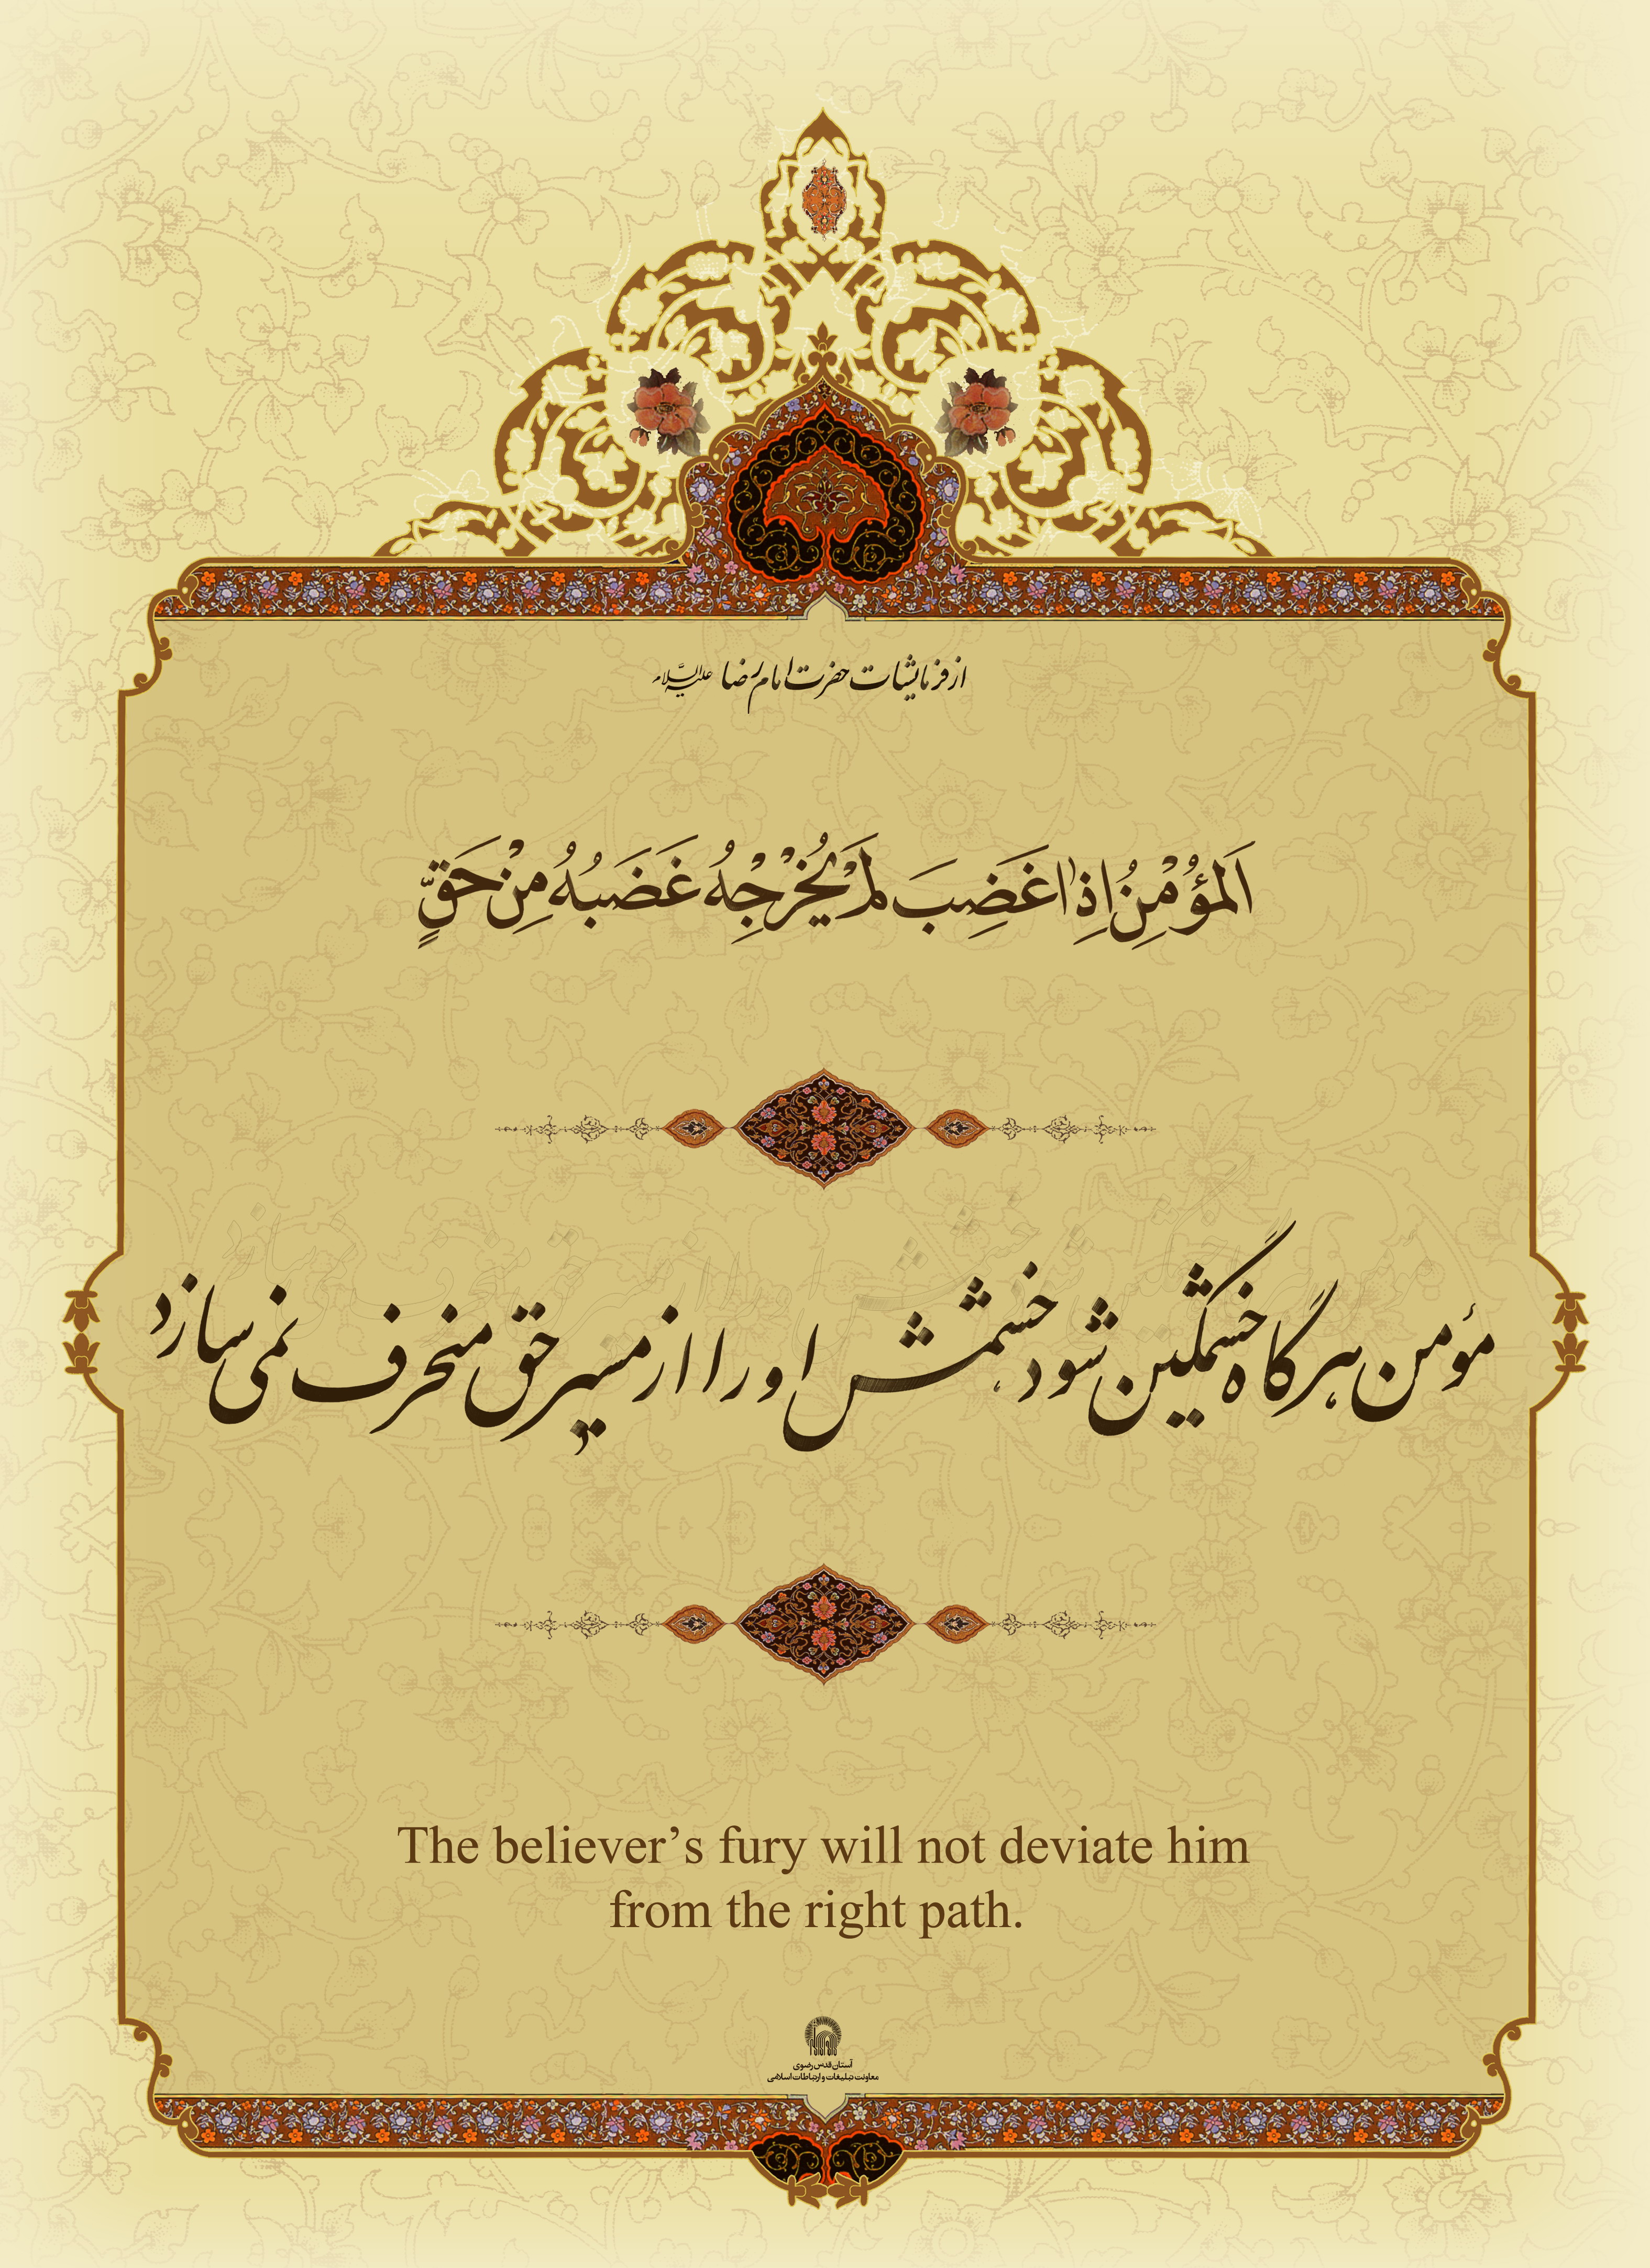 از فرمایشات حضرت امام رضا علیه‌السلام
اَلمؤُمْنِنُ اِذٰا غَضِبَ لَمْ یُخْرْجِْهُ غَضَبُهُ مِنْ حَقٍّ
مؤمن هرگاه خشمگین شود، خشمش او را از مسیر حق منحرف نمی‌سازد
The believer’s fury will not deviate him
from the right path.
آستان قدس رضوی
معاونت تبلیغات و ارتباطات اسلامی